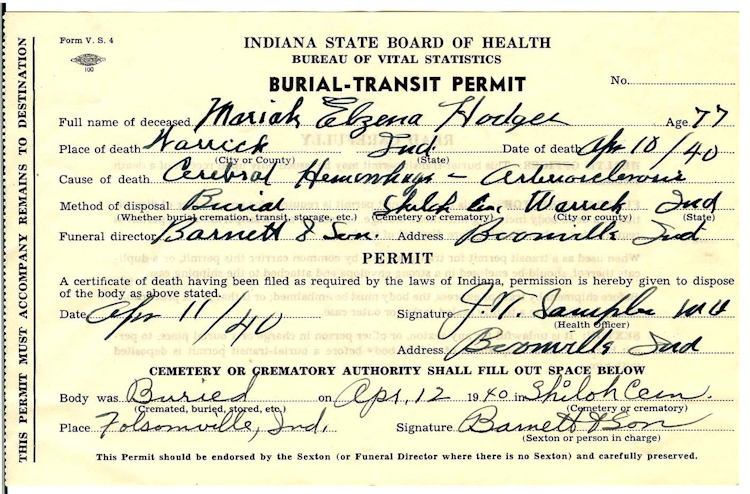 Form V. S. 4
INDIANA STATE BOARD OF HEALTH
BUREAU OF VITAL STATISTICS
100
BURIAL-TRANSIT PERMIT
No.
Full name of deceased Mariah Elzena Hodges Age 77
Place of death Warrick Ind Date of death Apr 10/40
(City or County) (State)
Cause of death Cerebral Hemorrhage - Arteriosclerosis
Method of disposal Burial Shiloh Cem. Warrick Ind
(Whether burial, cremation, transit, storage, etc.) (Cemetery or crematory) (City or county) (State)
Funeral director Barnett & Son. Address Boonville Ind
PERMIT
A certificate of death having been filed as required by the laws of Indiana, permission is hereby given to dispose
of the body as above stated.
Date Apr 11/40 Signature J. V. Samples MD
(Health Officer)
Address Boonville Ind
CEMETERY OR CREMATORY AUTHORITY SHALL FILL OUT SPACE BELOW
Body was Buried on Apr. 12 1940 in Shiloh Cem.
(Cremated, buried, stored, etc.) (Cemetery or crematory)
Place Folsomville, Ind. Signature Barnett & Son
(Sexton or person in charge)
This Permit should be endorsed by the Sexton (or Funeral Director where there is no Sexton) and carefully preserved.
THIS PERMIT MUST ACCOMPANY REMAINS TO DESTINATION